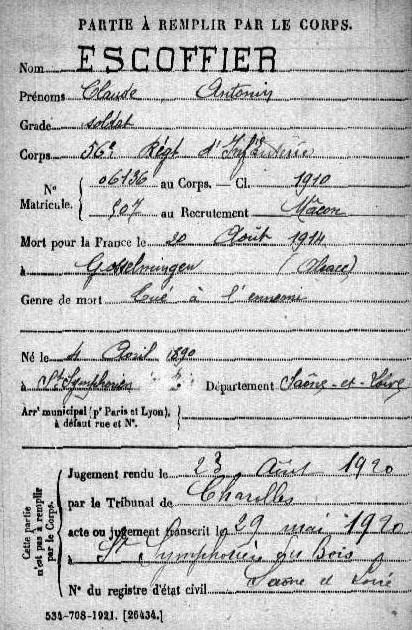 PARTIE À REMPLIR PAR LE CORPS.
Nom ESCOFFIER
Prénoms Claude Antonin
Grade soldat
Corps 56e Régt d'Infanterie
N° Matricule. 06136 au Corps. — Cl. 1910
507 au Recrutement Mâcon
Mort pour la France le 20 Août 1914
à Gosselmingen (Alsace)
Genre de mort Tué à l'ennemi
Né le 4 Avril 1890
à St Symphorien Département Saône-et-Loire
Arrt municipal (pr Paris et Lyon), à défaut rue et N°.
Cette partie n'est pas à remplir par le Corps.
Jugement rendu le 23 Août 1920
par le Tribunal de Charolles
acte ou jugement transcrit le 29 mai 1920
à St Symphorien des Bois
N° du registre d'état civil Saône et Loire
534-708-1921. [26434.]